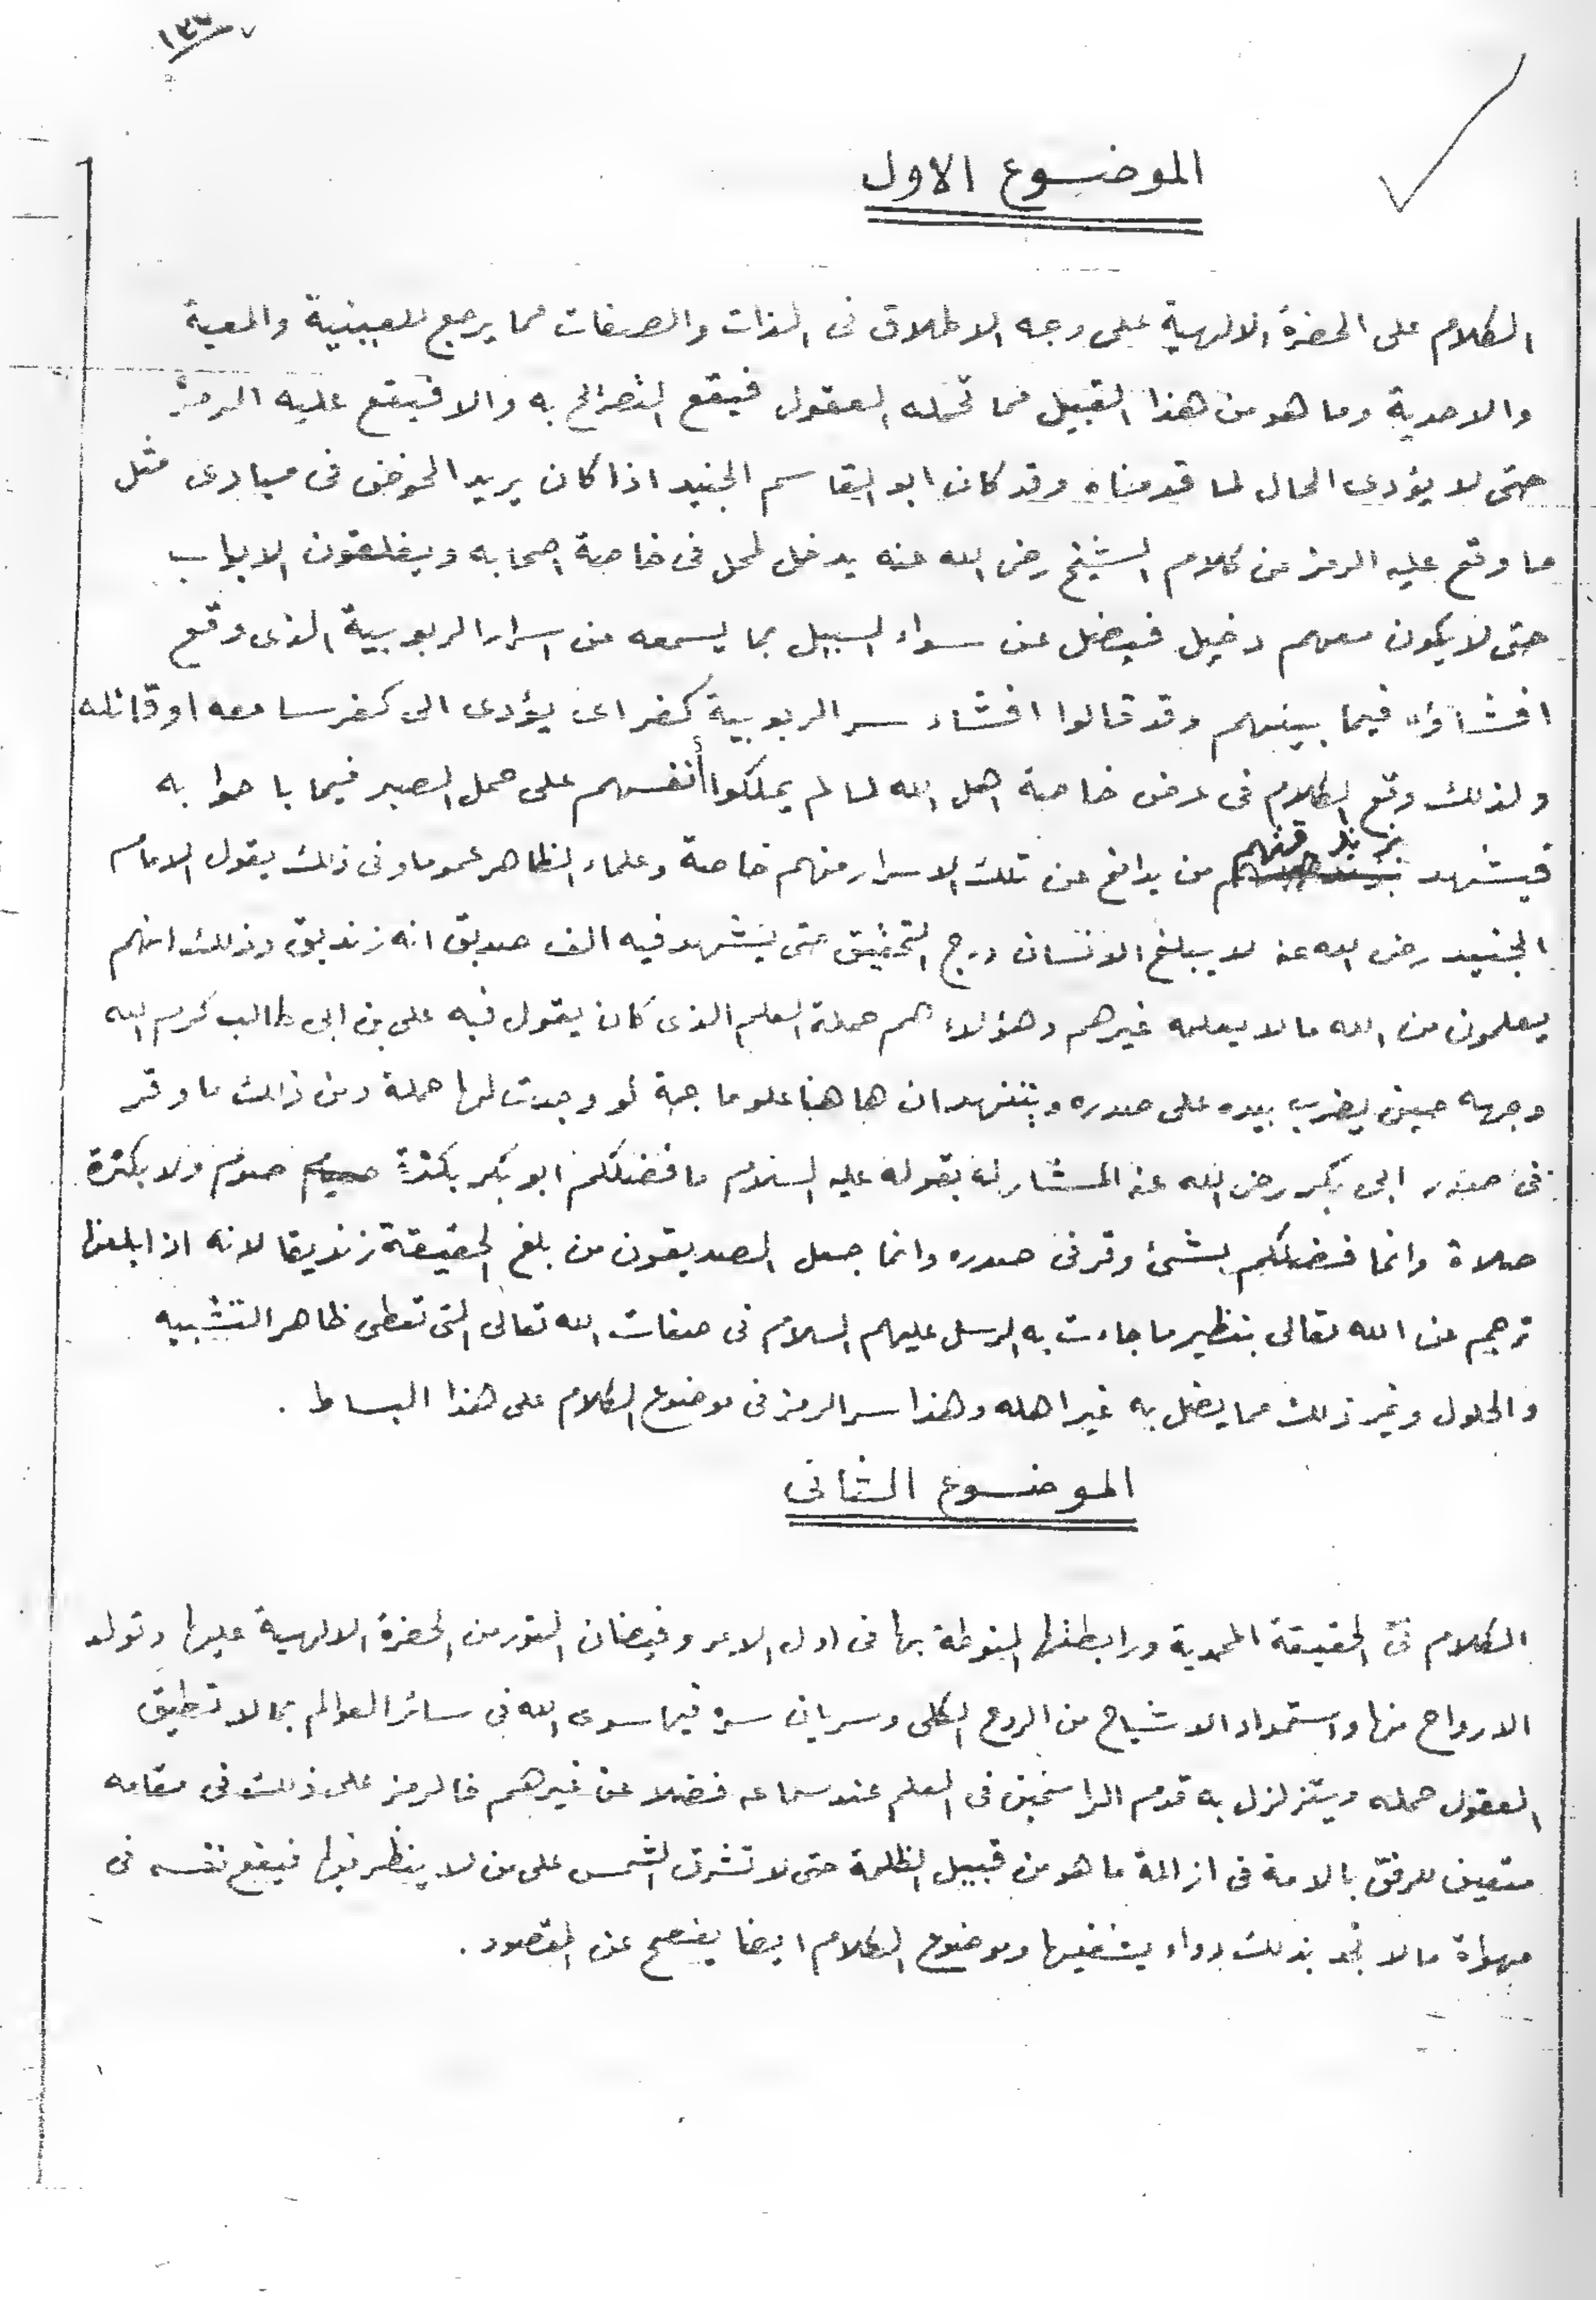 الموضوع الاول
الكلام على الحضرة الالهية على وجه الاطلاق فى الذات والصفات مما يرجع للعينية والمعية
والاحدية وما هو من هذا القبيل مما تحمله العقول فيقع التصريح به والا فيقع عليه الرمز
حتى لا يؤدى الحال لما قدمناه وقد كان ابو القاسم الجنيد اذا كان يريد الخوض فى مبادى مثل
ما وقع عليه الرمز من كلام الشيخ رضى الله عنه يدخل لمحل فى خاصة اصحابه ويغلقون الابواب
حتى لا يكون معهم دخيل فيضل عن سواء السبيل بما يسمعه من اسرار الربوبية الذى وقع
افشاؤه فيما بينهم وقد قالوا افشاء سر الربوبية كفر اى يؤدى الى كفر سامعه او قائله
ولذلك وقع الكلام فى عرض خاصة اهل الله لما لم يملكوا أنفسهم على حمل الصبر فيما باحوا به
فيشهد بزندقتهم من يدافع عن تلك الاسرار منهم خاصة وعلماء الظاهر عموما وفى ذلك يقول الامام
الجنيد رضى الله عنه لا يبلغ الانسان درج التحقيق حتى يشهد فيه الف صديق انه زنديق وذلك انهم
يعلمون من الله ما لا يعلمه غيرهم وهؤلاء هم حملة العلم الذى كان يقول فيه على بن ابى طالب كرم الله
وجهه حين يضرب بيده على صدره ويتنهد ان ها هنا علوما جمة لو وجدت لها حملة ومن ذلك ما وقر
فى صدر ابى بكر رضى الله عنه المشار له بقوله عليه السلام ما فضلكم ابو بكر بكثرة صوم ولا بكثرة
صلاة وانما فضلكم بشئ وقر فى صدره وانما جعل الصديقون من بلغ الحقيقة زنديقا لانه اذا بلغها
ترجم عن الله تعالى بنظير ما جاءت به الرسل عليهم السلام فى صفات الله تعالى التى تعطى ظاهر التشبيه
والحلول وغير ذلك مما يضل به غير اهله وهذا سر الرمز فى موضوع الكلام على هذا البساط .
الموضوع الثانى
الكلام فى الحقيقة المحمدية ورابطتها المنوطة بها فى اول الامر وفيضان النور من الحضرة الالهية عليها وتولد
الارواح منها واستمداد الاشباح من الروح الكلى وسريان سره فيما سوى الله فى سائر العوالم بما لا تطيق
العقول حمله ويتزلزل به قدم الراسخين فى العلم عند سماعه فضلا عن غيرهم فالرمز على ذلك فى مقامه
متعين للرفق بالامة فى ازالة ما هو من قبيل الظلمة حتى لا تشرق الشمس على من لا ينظر نورها فيقع نفسه فى
مهواة ما لا تجد بذلك دواء يشفيها وموضوع الكلام ايضا يفصح عن المقصود .